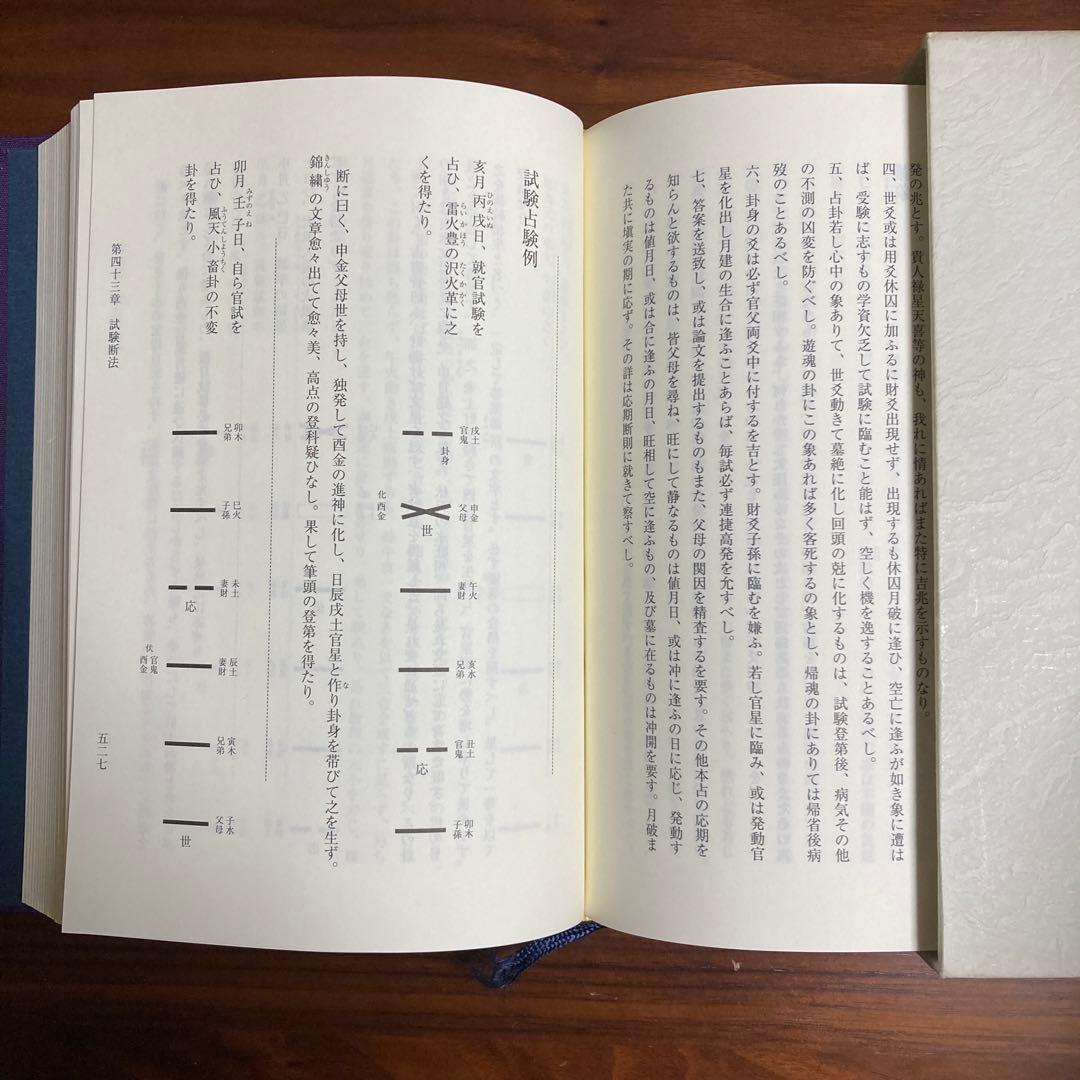 発の兆とす。貴人禄星天喜等の神も、我れに情あればまた特に吉兆を示すものなり。
四、世爻或は用爻休囚に加ふるに財爻出現せず、出現するも休囚月破に逢ひ、空亡に逢ふが如き象に遭は
ば、受験に志すもの学資欠乏して試験に臨むこと能はず、空しく機を逸することあるべし。
五、占卦若し心中の象ありて、世爻動きて墓絶に化し回頭の尅に化するものは、試験登第後、病気その他
の不測の凶変を防ぐべし。遊魂の卦にこの象あれば多く客死するの象とし、帰魂の卦にありては帰省後病
歿のことあるべし。
六、卦身の爻は必ず官父両爻中に付するを吉とす。財爻子孫に臨むを嫌ふ。若し官星に臨み、或は発動官
星を化出し月建の生合に逢ふことあらば、毎試必ず連捷高発を允すべし。
七、答案を送致し、或は論文を提出するものもまた、父母の関因を精査するを要す。その他本占の応期を
知らんと欲するものは、皆父母を尋ね、旺にして静なるものは値月日、或は冲に逢ふの日に応じ、発動す
るものは値月日、或は合に逢ふの月日、旺相して空に逢ふもの、及び墓に在るものは冲開を要す。月破ま
た共に填実の期に応ず。その詳は応期断則に就きて察すべし。
試験占験例
亥月丙戌日、就官試験を
ひのえいぬ
占ひ、雷火豊の沢火革に之
らいかほう
たくかかく
くを得たり。
戌土
官鬼
卦身
申金
父母
化酉金
世
午火
妻財
亥水
兄弟
丑土
官鬼
応
卯木
子孫
断に曰く、申金父母世を持し、独発して酉金の進神に化し、日辰戌土官星と作り卦身を帯びて之を生ず。
な
錦繡の文章愈々出てて愈々美、高点の登科疑ひなし。果して筆頭の登第を得たり。
きんしゆう
卯月壬子日、自ら官試を
みずのえね
占ひ、風天小畜卦の不変
ふうてんしようちく
卦を得たり。
卯木
兄弟
巳火
子孫
未土
妻財
応
辰土
妻財
伏官鬼
酉金
寅木
兄弟
子水
父母
世
第四十三章 試験断法
五二七